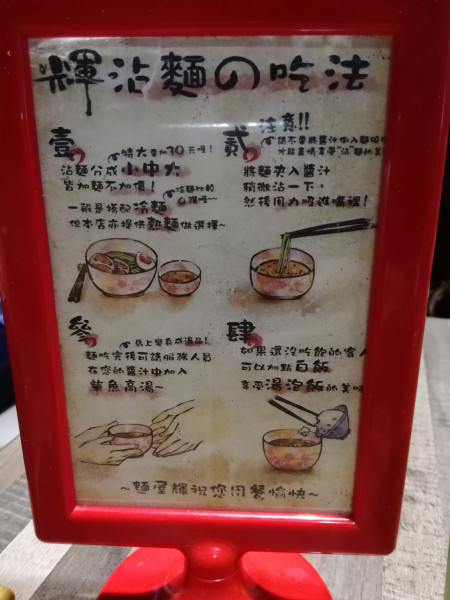 輝沾麵の吃法
壹
特大要加30元喔!
沾麵分成小中大
皆加麵不加價!
冷麵比較
一般是搭配冷麵
但本店亦提供熱麵做選擇~
貳
注意!!
請不要將醬汁倒入麵
將麵夾入醬汁
稍微沾一下,
然後用力吸進嘴裡!
參
馬上變身成湯品!
麵吃完後可請服務人員
在您的醬汁中加入
柴魚高湯~
肆
如果還沒吃飽的客人
可以加點白飯
享受湯泡飯的美味
~麵屋輝祝您用餐愉快~